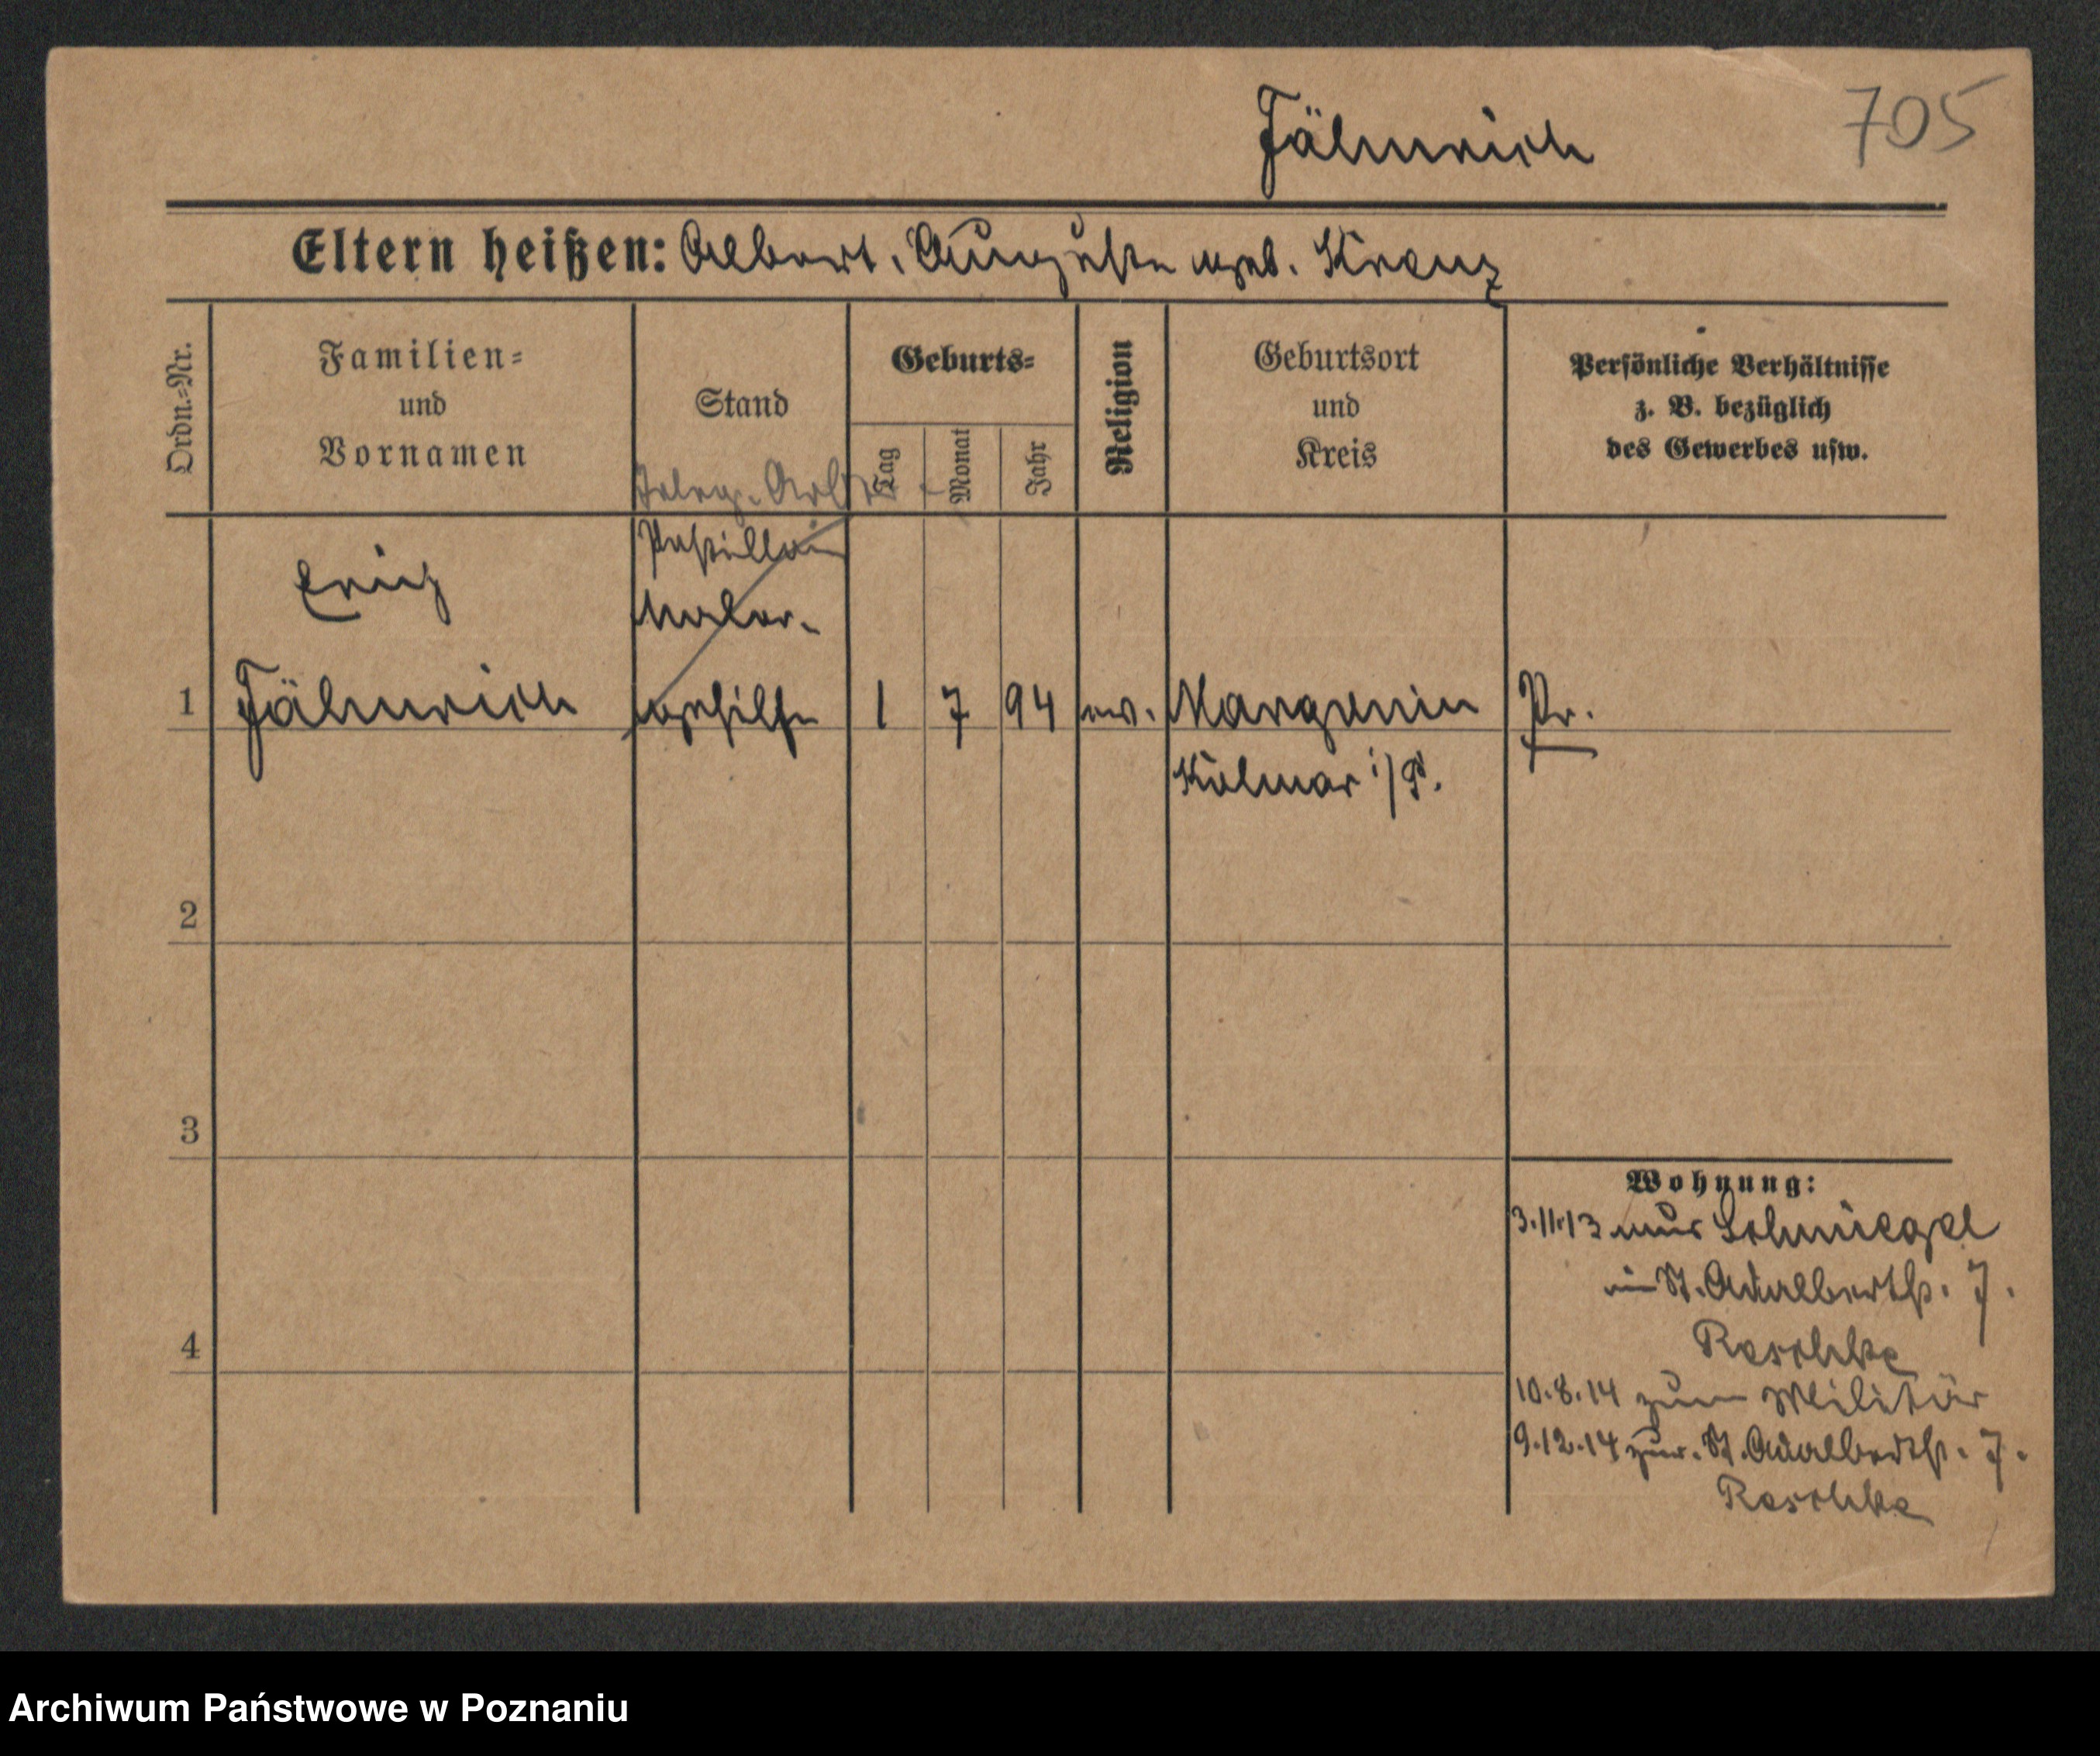 Fähnrich
705
Eltern heißen: Albert, Auguste geb. Kranz
Ordn.-Nr.
Familien-
und
Vornamen
Stand
Geburts-
Tag
Monat
Jahr
Religion
Geburtsort
und
Kreis
Persönliche Verhältnisse
z. B. bezüglich
des Gewerbes usw.
Telegr. Arb
Postillon
Erich
Maler-
1
Fähnrich
gehilfe
1
7
94
ev.
Margonin
Pr.
Kolmar i/P.
2
3
4
Wohnung:
3.11.13 aus Schmiegel
in St. Adalbertstr. 7.
Raschke
10.8.14 zum Militär
9.12.14 zur. St. Adalbertstr. 7.
Raschke
Archiwum Państwowe w Poznaniu